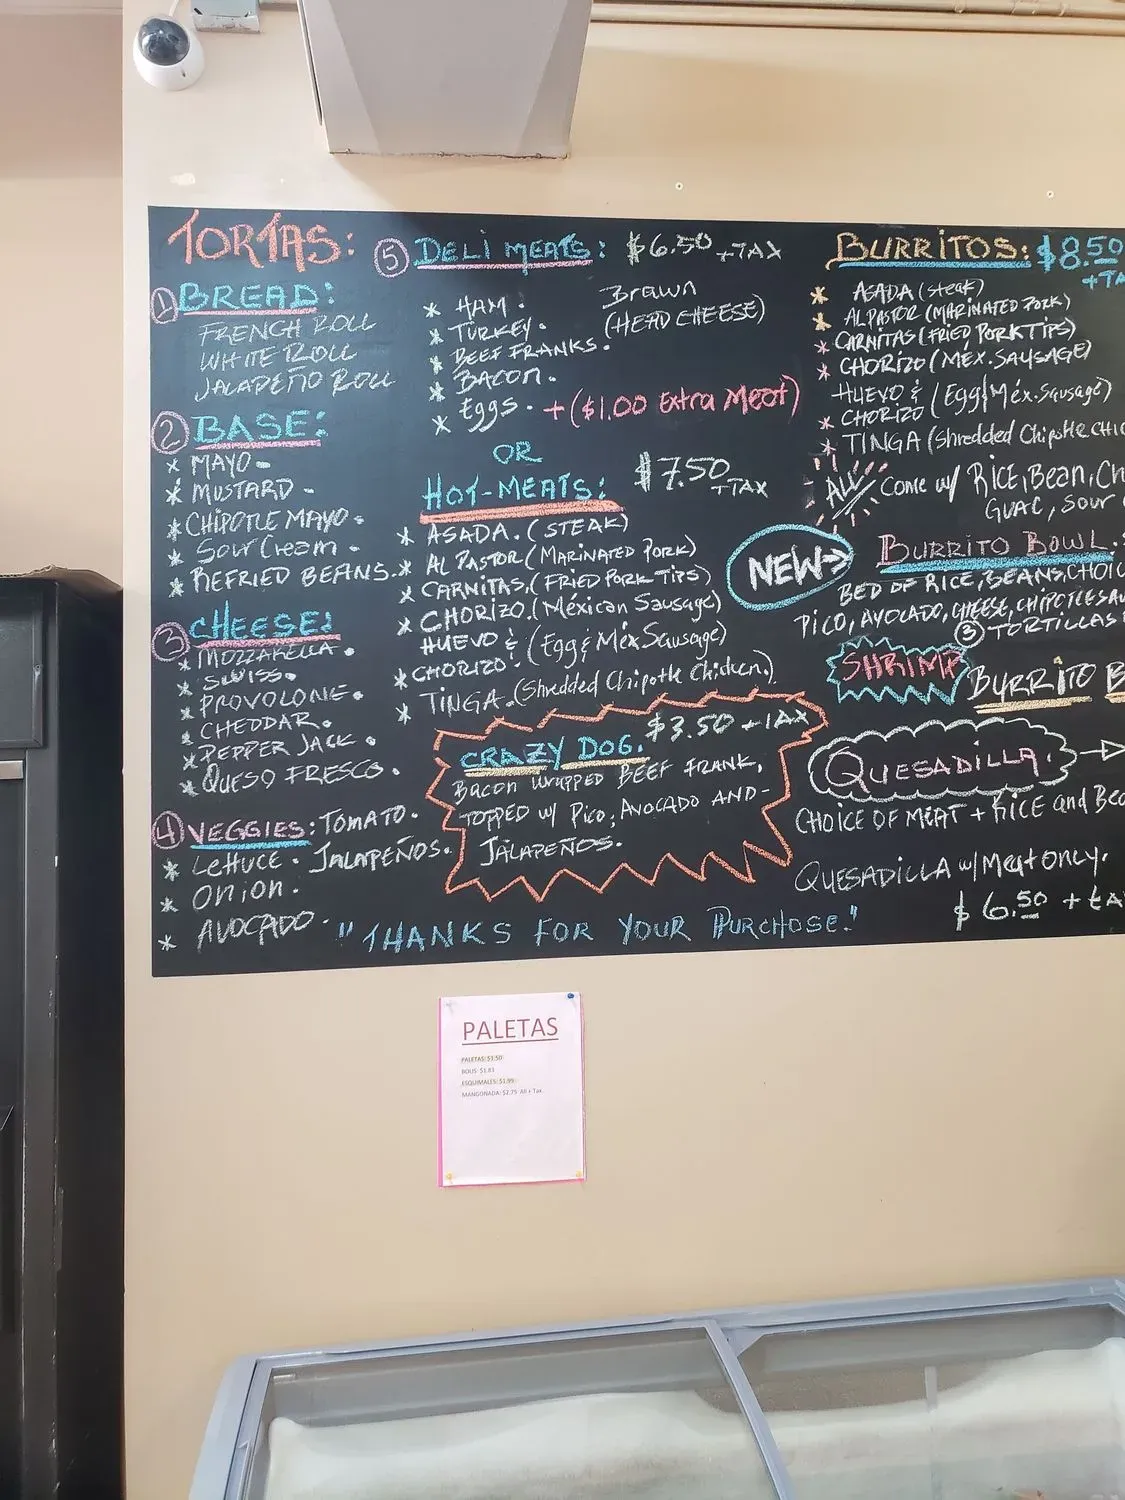 TORTAS:
① BREAD:
FRENCH ROLL
WHITE ROLL
JALAPEÑO ROLL
② BASE:
* MAYO -
* MUSTARD -
* CHIPOTLE MAYO.
* Sour Cream -
* REFRIED BEANS.
③ CHEESE:
* MOZZARELLA.
* SWISS.
* PROVOLONE.
* CHEDDAR.
* PEPPER JACK.
* QUESO FRESCO.
④ VEGGIES: TOMATO.
* Lettuce. JALAPEÑOS.
* Onion.
* AVOCADO.
⑤ DELI MEATS: $6.50 +TAX
* HAM. Brawn
* TURKEY. (HEAD CHEESE)
* BEEF FRANKS.
* BACON.
* Eggs. + ($1.00 Extra Meat)
OR
HOT-MEATS: $7.50 +TAX
* ASADA. (STEAK)
* AL PASTOR (MARINATED PORK)
* CARNITAS, (FRIED PORK TIPS)
* CHORIZO. (Méxican Sausage)
HUEVO & (Egg & Méx Sausage)
* CHORIZO.
* TINGA. (Shredded Chipotle Chicken.)
CRAZY DOG. $3.50 +TAX
Bacon wrapped BEEF FRANK,
TOPPED w/ Pico, Avocado AND-
JALAPEÑOS.
"THANKS FOR YOUR PURCHOSE!"
BURRITOS: $8.50
* ASADA (steak)
* AL PASTOR (MARINATED PORK)
* CARNITAS (FRIED PORK TIPS)
* CHORIZO (MÉX. SAUSAGE)
HUEVO & (Egg/Méx. Sausage)
* CHORIZO
* TINGA (Shredded Chipotle
ALL Come w/ RICE, Bean,
GUAC, SOUR
NEW→ BURRITO BOWL.
BED OF RICE, BEANS,
PICO, AVOCADO, CHEESE,
③ TORTILLAS
SHRIMP BURRITO
QUESADILLA.
CHOICE OF MEAT + RICE and
QUESADILLA w/ Meat only.
$6.50 +
PALETAS
PALETAS: $1.50
BOLIS: $1.83
ESQUIMALES: $1.99
MANGONADA: $2.75 All + Tax